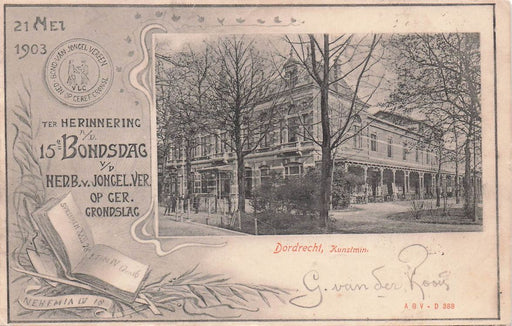 21 MEI
1903
NED. BOND VAN JONGEL. VEREEN.
OP GEREF. GRONDSL.
V L C
TER HERINNERING
A/D
15DE BONDSDAG
V/D
NED. B. V. JONGEL. VER.
OP GER.
GRONDSLAG
NEHEMIA IV 18a
Dordrecht, Kunstmin.
G. van der Rooij
A G V - D 388